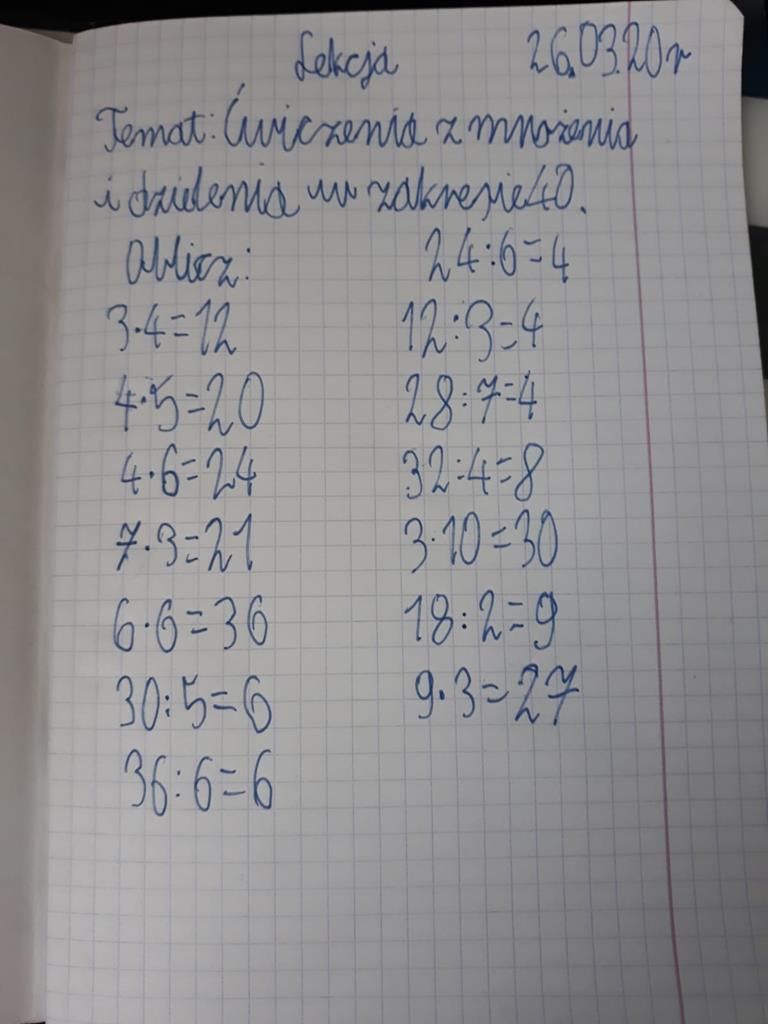 Lekcja 26.03.20r
Temat: Ćwiczenia z mnożenia
i dzielenia w zakresie 40.
Oblicz: 24:6=4
3·4=12 12:3=4
4·5=20 28:7=4
4·6=24 32:4=8
7·3=21 3·10=30
6·6=36 18:2=9
30:5=6 9·3=27
36:6=6